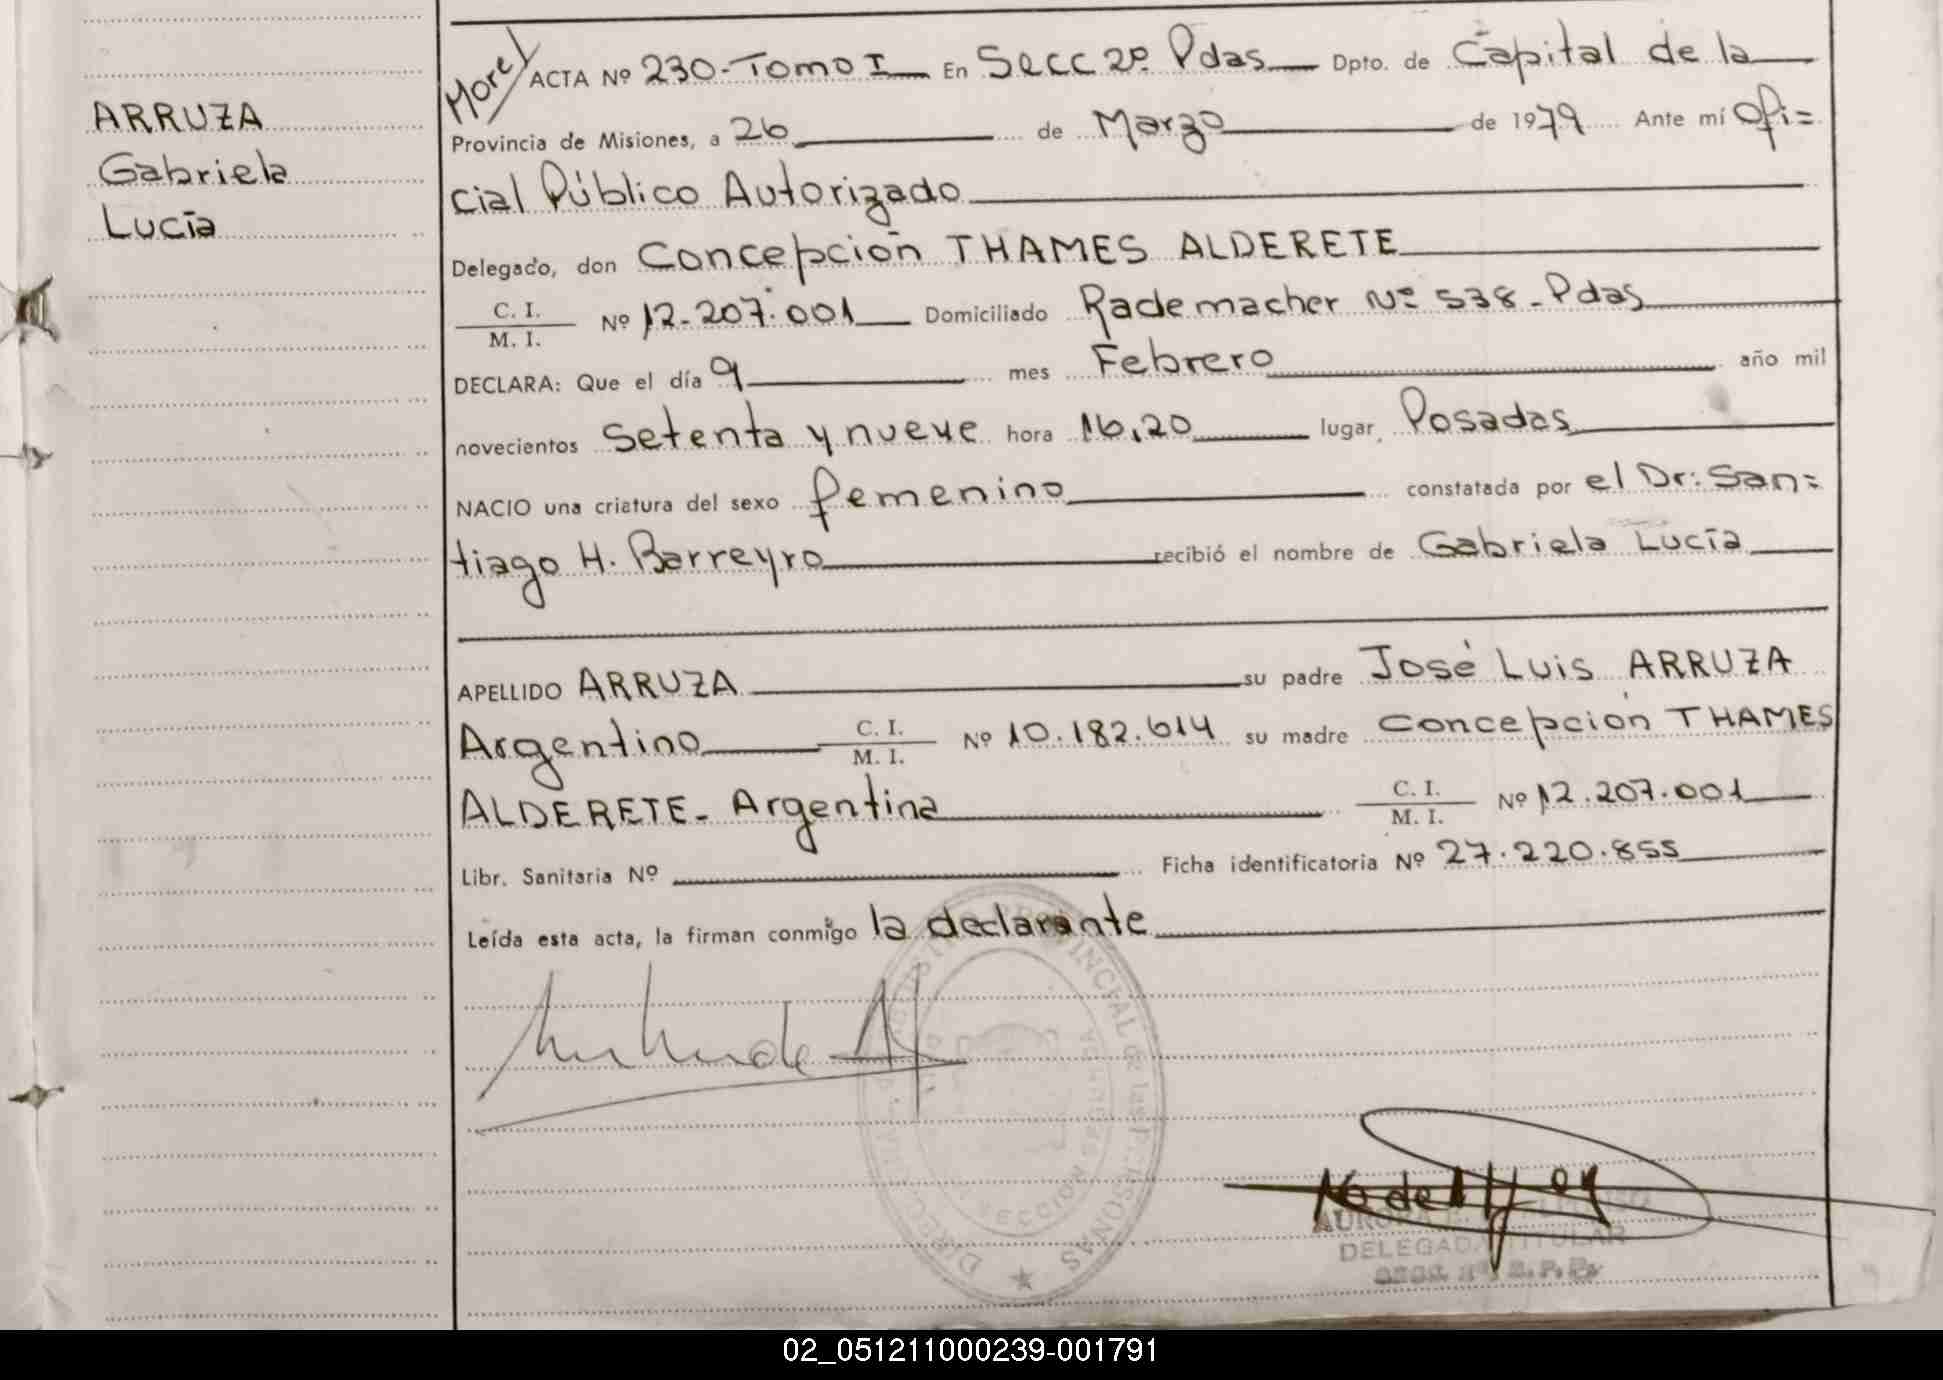 ARRUZA
Gabriela
Lucía
Morel
ACTA Nº 230-Tomo I En Secc 2º Pdas Dpto. de Capital de la
Provincia de Misiones, a 26 de Marzo de 1979 Ante mí Ofi=
cial Público Autorizado
Delegado, don Concepción THAMES ALDERETE
C. I.
M. I. Nº 12.207.001 Domiciliado Rademacher Nº 538-Pdas
DECLARA: Que el día 9 mes Febrero año mil
novecientos Setenta y nueve hora 16,20 lugar Posadas
NACIO una criatura del sexo femenino constatada por el Dr: San=
tiago H. Barreyro recibió el nombre de Gabriela Lucía
APELLIDO ARRUZA su padre José Luis ARRUZA
Argentino C. I. M. I. Nº 10.182.614 su madre Concepción THAMES
ALDERETE- Argentina C. I. M. I. Nº 12.207.001
Libr. Sanitaria Nº Ficha identificatoria Nº 27.220.855
Leída esta acta, la firman conmigo la declarante
PROVINCIAL de las PERSONAS
AURORA
DELEGADA TITULAR
02_051211000239-001791